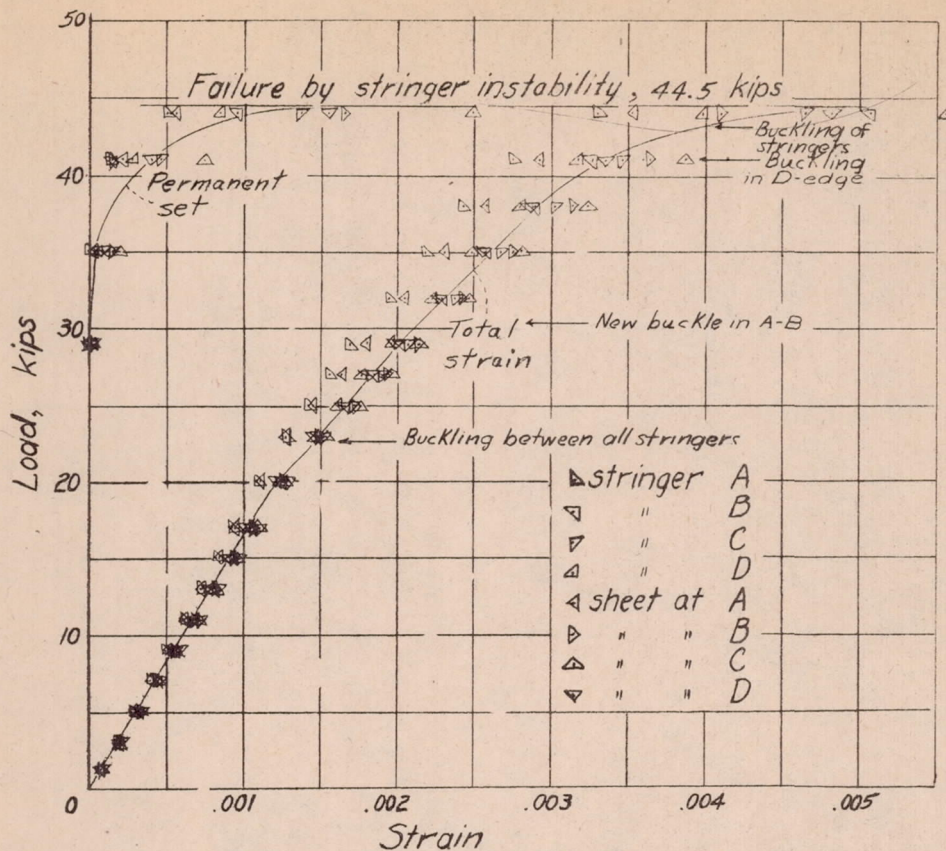 50
Failure by stringer instability, 44.5 kips
Buckling of
stringers
Buckling
in D-edge
40
Permanent
set
30
Total
strain
New buckle in A-B
Load, kips
Buckling between all stringers
20
stringer A
" B
" C
" D
sheet at A
" " B
" " C
" " D
10
0
.001
.002
.003
.004
.005
Strain